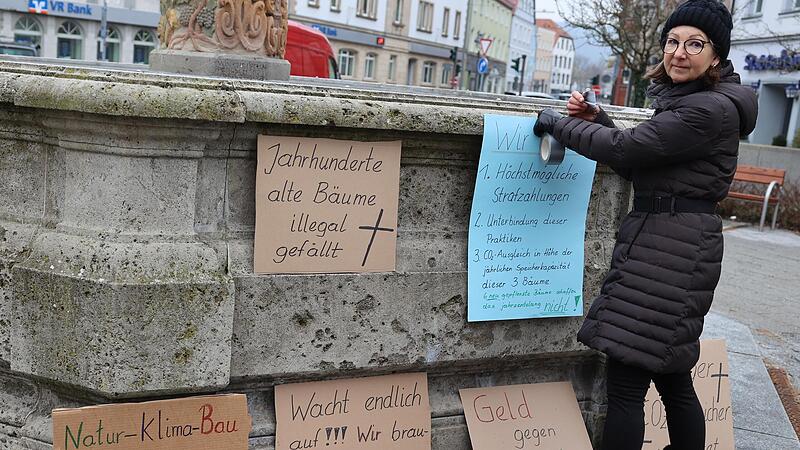 VR Bank
Jahrhunderte
alte Bäume
illegal
gefällt
Wir
1. Höchstmögliche
Strafzahlungen
2. Unterbindung dieser
Praktiken
3. CO₂-Ausgleich in Höhe der
jährlichen Speicherkapazität
dieser 3 Bäume
6 neu gepflanzte Bäume schaffen
das jahrzentelang nicht!
Natur-Klima-Bau
Wacht endlich
auf!!! Wir brau-
Geld
gegen